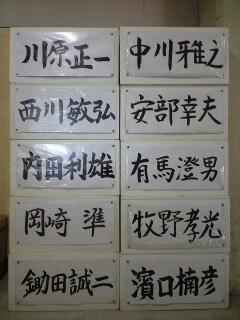 川原正一
中川雅之
西川敏弘
安部幸夫
内田利雄
有馬澄男
岡崎準
牧野孝光
鋤田誠二
濱口楠彦